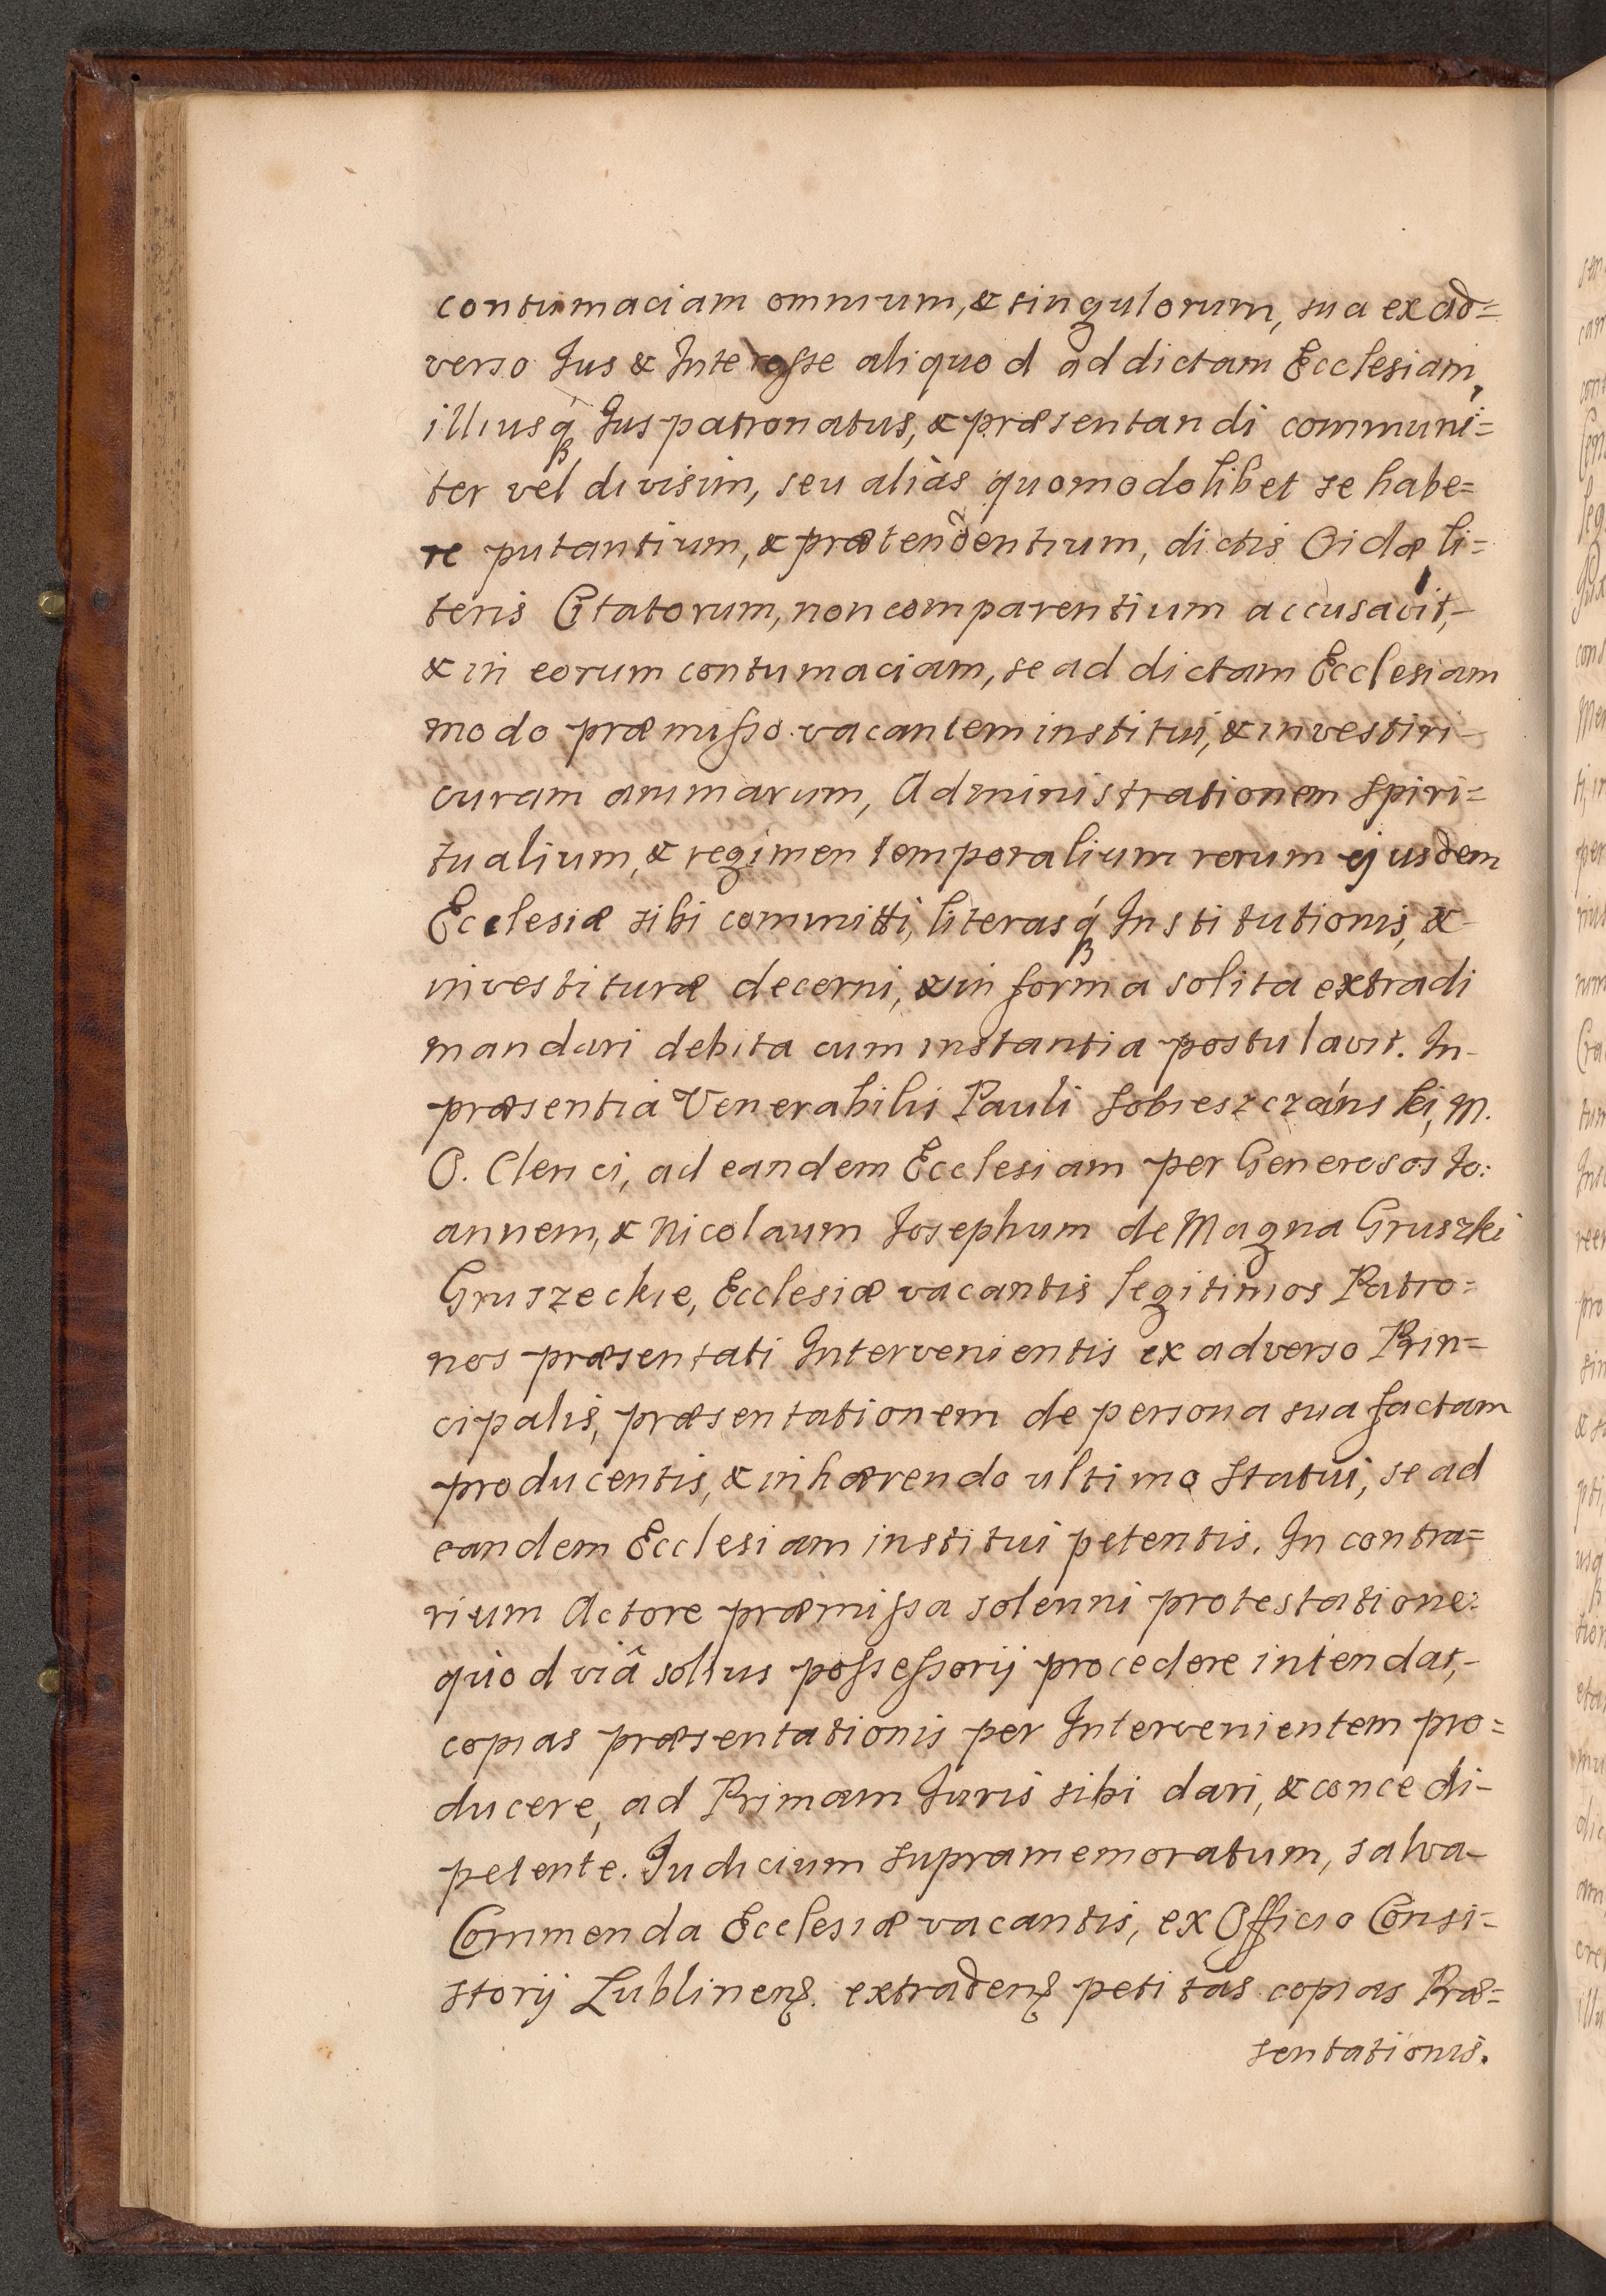 contumaciam omnium, & singulorum, sua ex ad=
verso Jus & Interesse aliquod ad dictam Ecclesiam,
illiusq́ꝫ Juspatronatus, & præsentandi communi=
ter vel divisim, seu aliàs quomodolibet se habe=
re putantium, & prætendentium, dictis Oidæ li=
teris Citatorum, non comparentium accusavit,-
& in eorum contumaciam, se ad dictam Ecclesiam
modo præmisso vacantem institui, & investiri-
curam animarum, Administrationem Spiri=
tualium, & regimen temporalium rerum ejusdem
Ecclesiæ sibi committi, literasq́ꝫ Institutionis, &
investituræ decerni, & in forma solita extradi
mandari debita cum instantia postulavit. In-
præsentia Venerabilis Pauli Sobieszczánski, M.
O. Clerici, ad eandem Ecclesiam per Generosos Jo:
annem, & Nicolaum Josephum de Magna Gruszki
Gruszeckie, Ecclesiæ vacantis legitimos Patro=
nos præsentati Intervenientis ex adverso Prin=
cipalis, præsentationem de persona sua factam
producentis, & inhærendo ultimo Statui, se ad
eandem Ecclesiam institui petentis. In contra=
rium Actore præmissa solenni protestatione:
quòd viâ solius possessorij procedere intendat,-
copias præsentationis per Intervenientem pro=
ducere, ad Primam Juris sibi dari, & concedi-
petente. Judicium supramemoratum, salva-
Commenda Ecclesiæ vacantis, ex Officio Consi=
storij Lublinenꝭ. extradenꝭ petitas copias Præ=
sentationis.